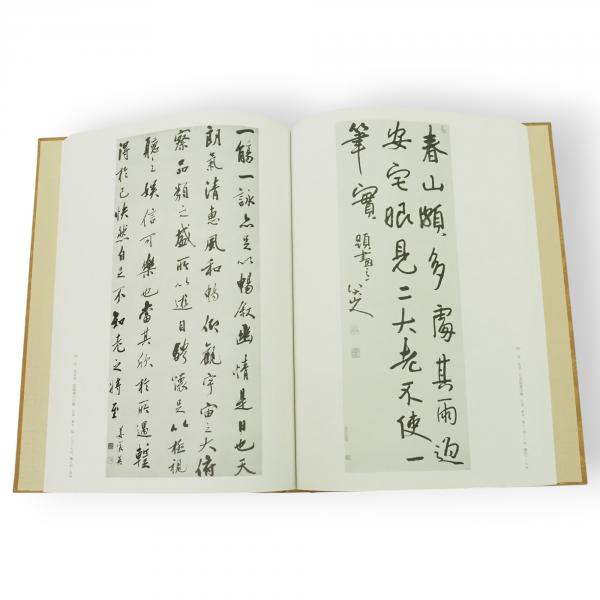 春山頗多處其雨
安宅眼見二大老不使一
筆實 題畫之 八大山人
一觴一詠亦足以暢敘幽情是日也天
朗氣清惠風和暢仰觀宇宙之大俯
察品類之盛所以遊目騁懷足以極視
聽之娛信可樂也當其欣於所遇暫
得於己快然自足不知老之將至 姜宸英